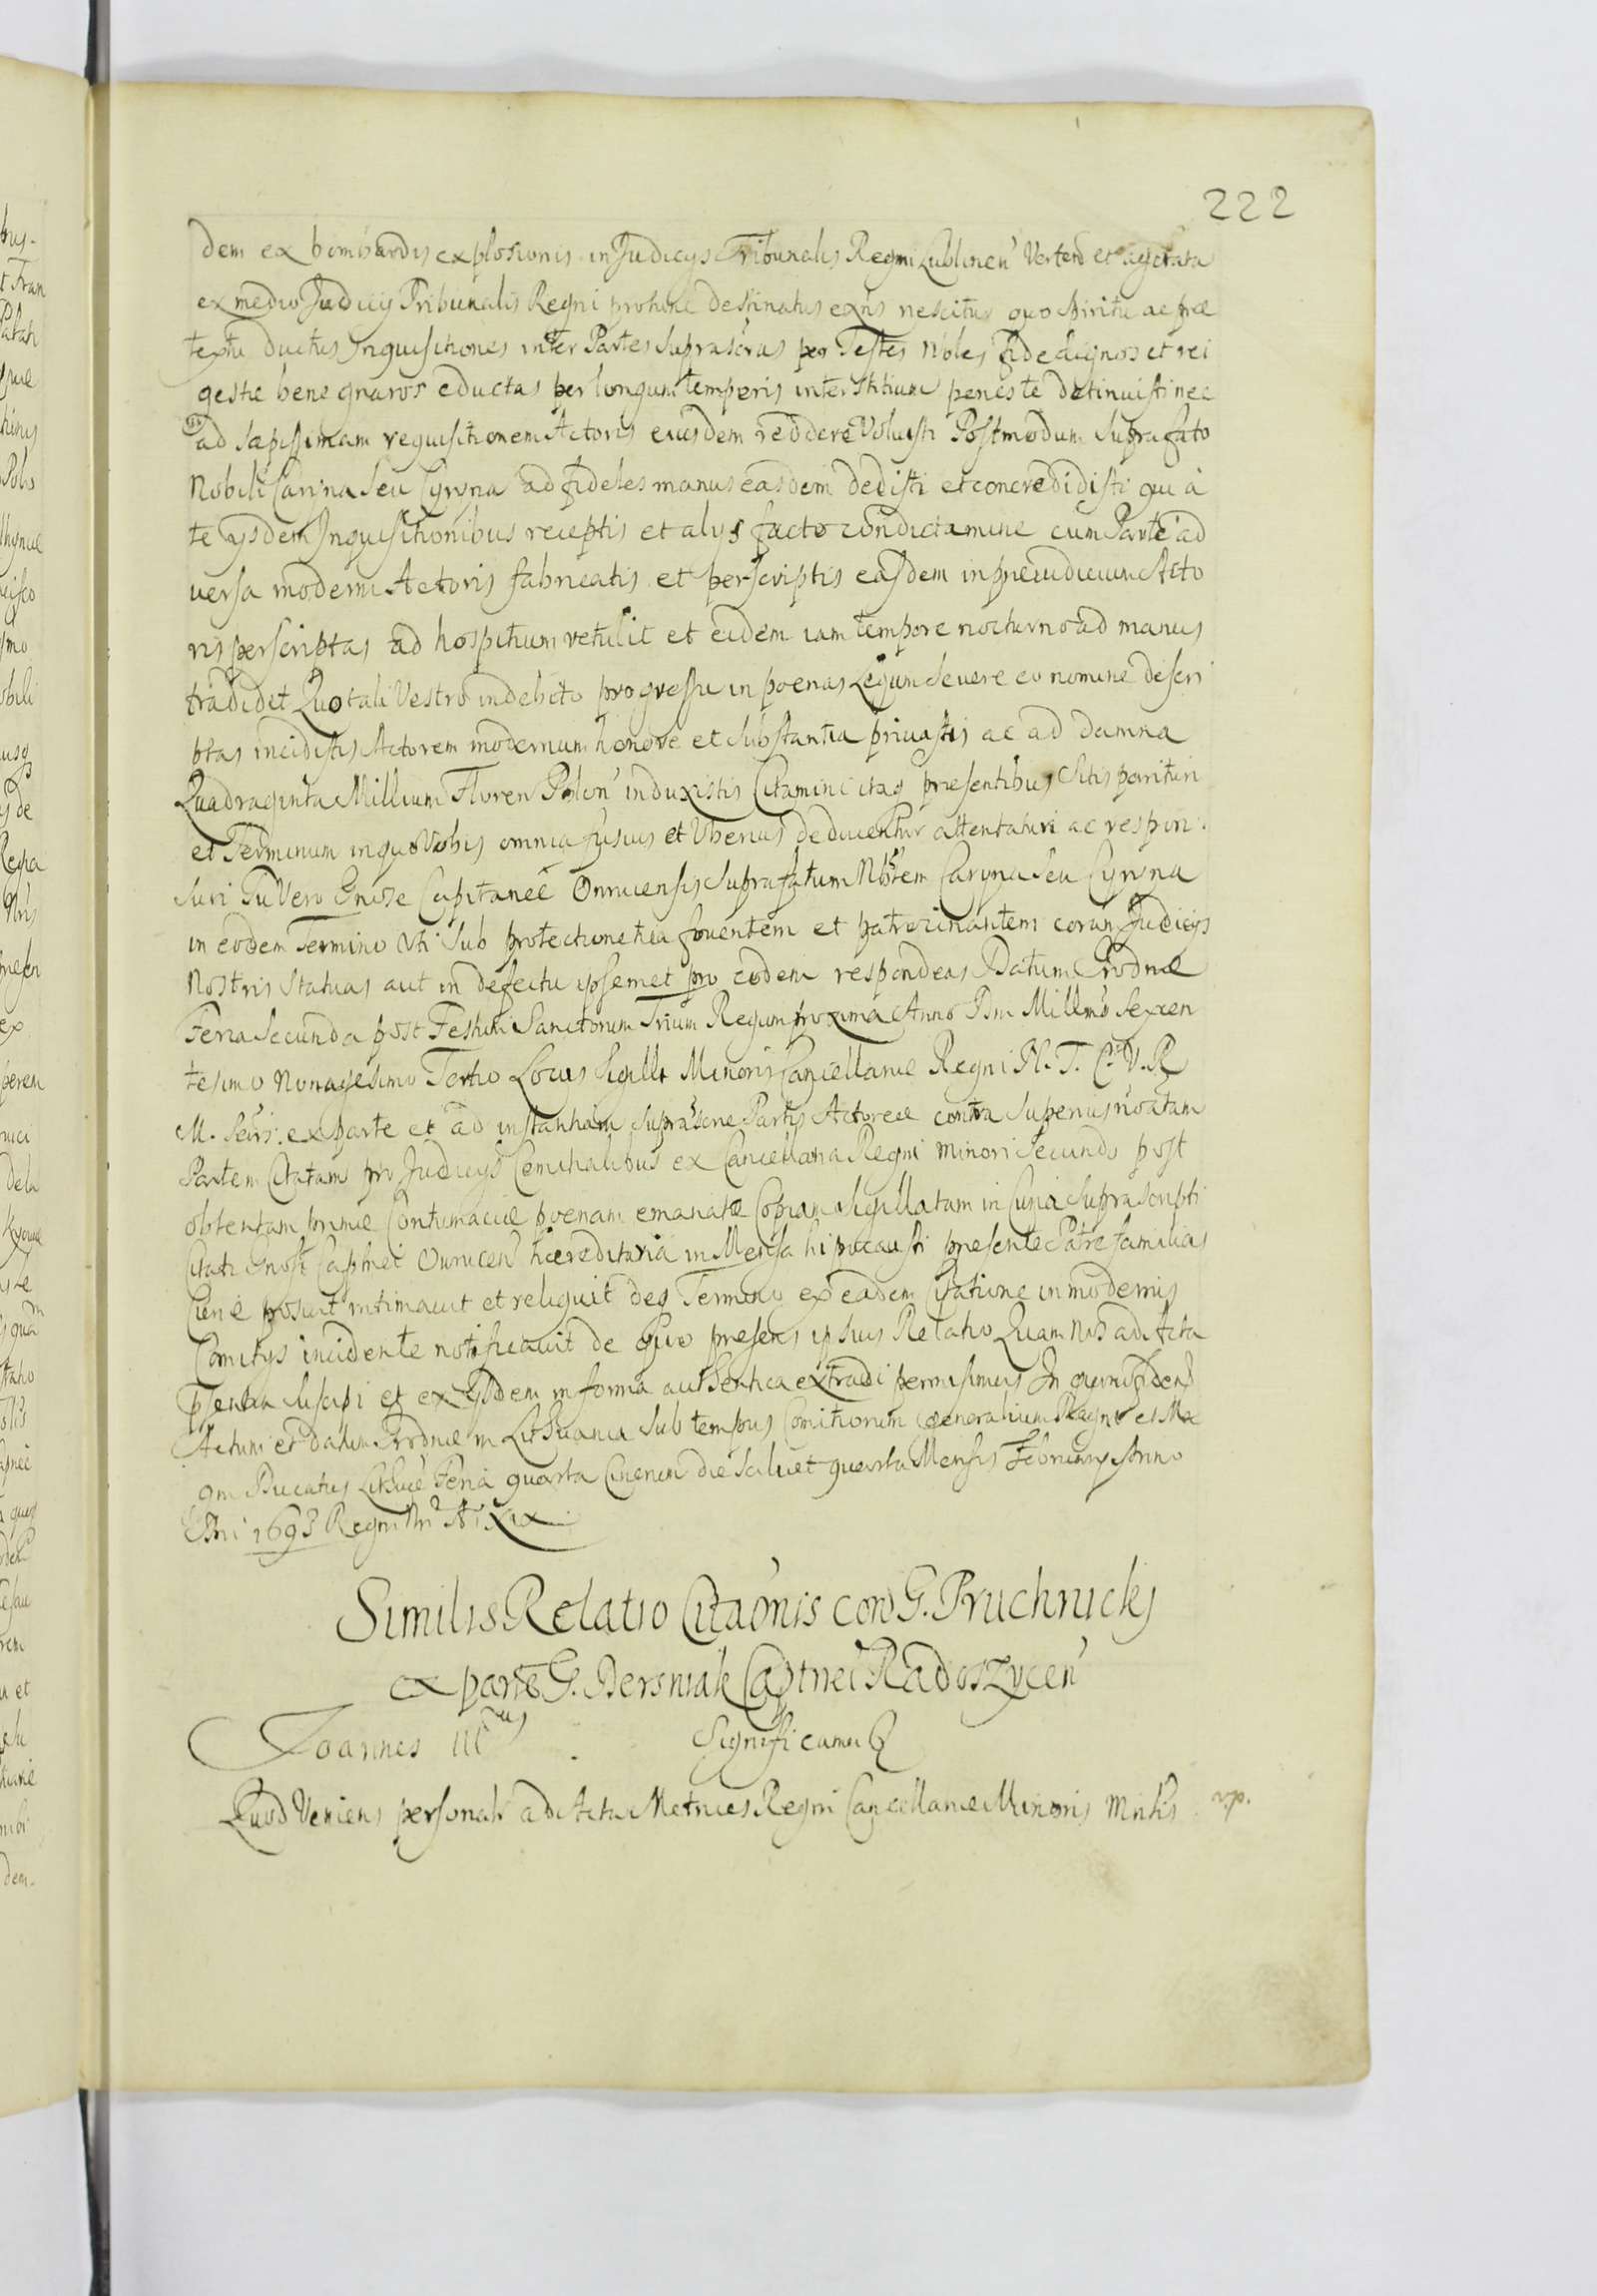 222
dem ex bombardis explosionis in Judicys Tribunalis Regni Lublinen Verten et agitata
ex medio Judicij Tribunalis Regni pro tunc destinatus exns nescitur quo spiritu ac præ
textu ductus Inquisitiones inter Partes suprascras per Testes Nobles fide dignos et rei
gestæ bene gnaros eductas per longum temporis interstitium penes te detinuisti nec
ad sæpissimam requisitionem Actoris eiusdem reddere Voluisti Postmodum suprafato
Nobili Caryna seu Cyryna ad fideles manus easdem dedisti et concredidisti qui à
te ijsdem Inquisitionibus receptis et alys facto condictamine cum Parte ad
uersa moderni Actoris fabricatis et perscriptis easdem in præiudicium Acto
ris perscriptas ad hospitium retulit et eidem iam tempore nocturno ad manus
tradidit Quo tali Vestro indebito progressu in poenas Legum seuere eo nomine descri
ptas incidistis Actorem modernum honore et substantia priuastis ac ad damna
Quadraginta Millium Floren Polon induxistis Citamini itaq præsentibus sitis parituri
et Terminum in quo Vobis omnia fusius et Vberius deducentur attentaturi ac respon
suri Tu Vero Gnose Capitanee Owrucensis suprafatum Nobilem Caryna seu Cyryna
in eodem Termino Vti sub protectione tua fouentem et patrocinantem coram Judicijs
Nostris statuas aut in defectu ipsemet pro eodem respondeas Datum Grodnæ
Feria Secunda post Festum Sanctorum Trium Regum proxima Anno Dni Millmo Sexcen
tesimo Nonagesimo Tertio Locus Sigilli Minoris Cancellariæ Regni
M. Secrs. ex parte et ad instantiam suprascræ Partis Actoreæ contra superius noatam
Partem Citatam pro Judicijs Comitialibus ex Cancellaria Regni Minori secundo post
obtentam primæ Contumaciæ poenam emanatæ Copiam sigillatam in Curia suprascripti
Citati Gnosi Capitnei Owrucen hæreditaria in Mensa hipocausti præsente Patre familias
Curiæ posuit intimauit et reliquit deq Termino ex eadem Citatione in modernis
Comitys incidente notificauit de quo præsens ipsius Relatio Quam Nos ad Acta
præsentia suscipi et ex ijsdem in forma authentica extradi permisimus In quorum fidem
Actum et datum Grodnæ in Lithuania sub tempus Comitiorum Generalium Regni et Ma
gni Ducatus Lithuæ Feria quarta Cinerum die scilicet quarta Mensis February Anno
Dni 1693 Regni Nri Ao XIX
Similis Relatio Citaonis con G. Pruchnicki
ex parte G. Dersniak Captnei Radoszycen
Joannes IIIus Significamus
Quod Veniens personalr ad Acta Metrices Regni Cancellariæ Minoris Mntis